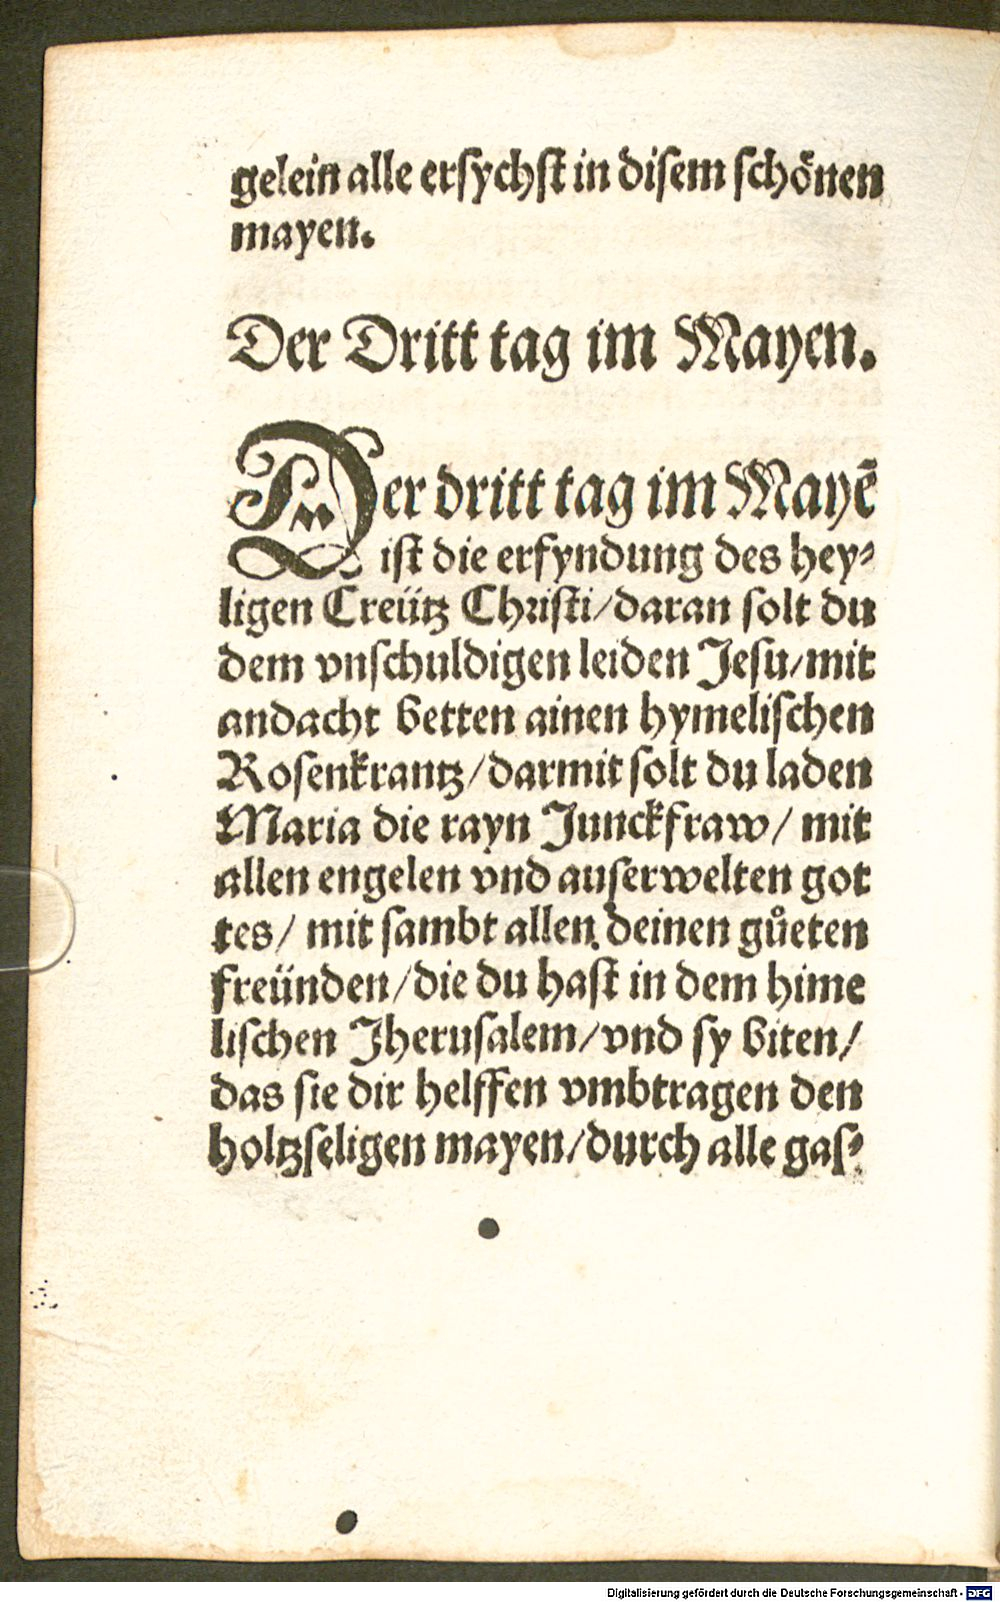 gelein alle ersychst in disem schönen
mayen.
Der Dritt tag im Mayen.
Der dritt tag im Mayē
ist die erfyndung des hey⸗
ligen Creütz Christi/daran solt du
dem vnschuldigen leiden Jesu/mit
andacht betten ainen hymelischen
Rosenkrantz/darmit solt du laden
Maria die rayn Junckfraw/ mit
allen engelen vnd auserwelten got
tes/ mit sambt allen deinen gůeten
freünden/die du hast in dem hime
lischen Jherusalem/vnd sy biten/
das sie dir helffen vmbtragen den
holtzseligen mayen/durch alle gas⸗
Digitalisierung gefördert durch die Deutsche Forschungsgemeinschaft - DFG